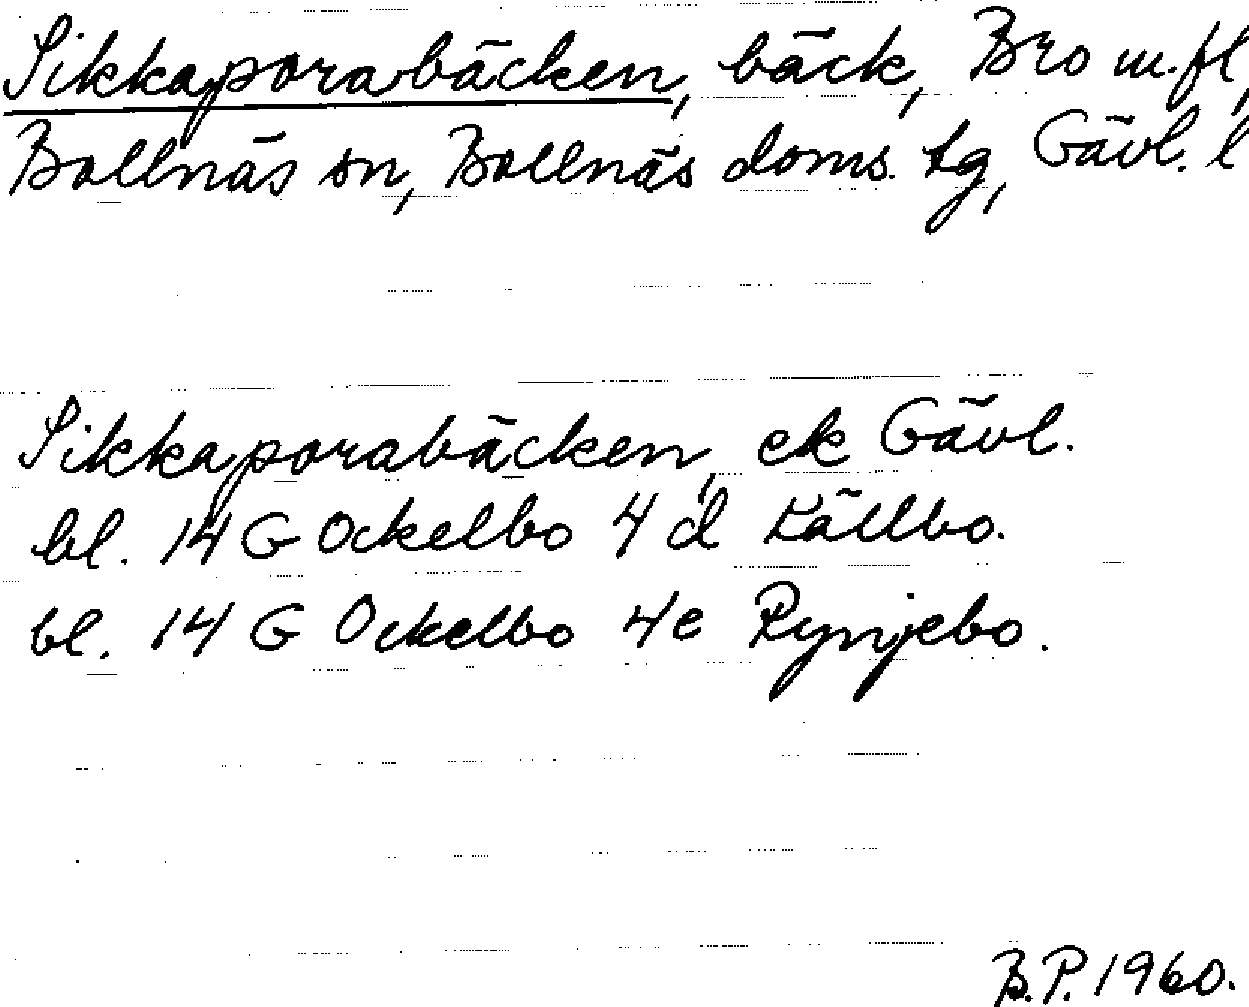 Sikkaporabäcken, bäck, Bro m.fl,
Bollnäs sn, Bollnäs doms. tg, Gävl. l
Sikkaporabäcken, ek Gävl.
bl. 14 G Ockelbo 4 d Källbo.
bl. 14 G Ockelbo 4e Rymjebo.
B.P. 1960.